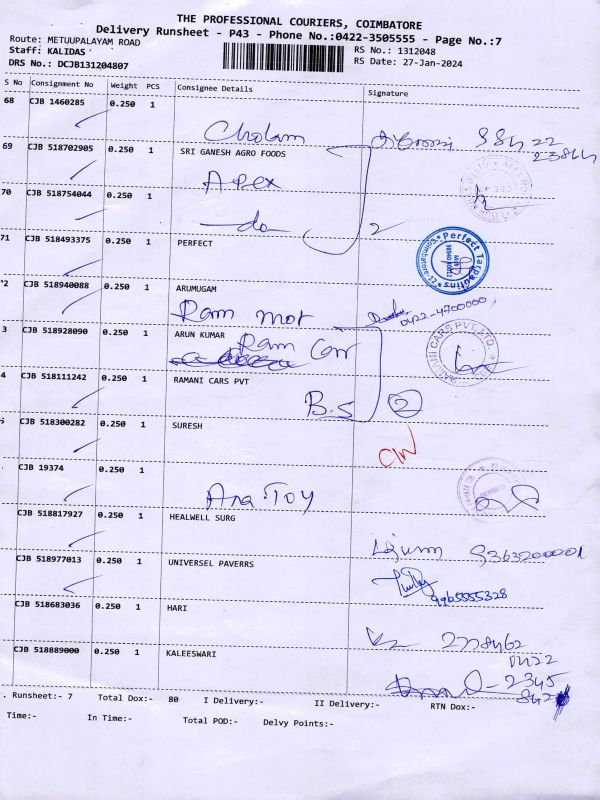 THE PROFESSIONAL COURIERS, COIMBATORE
Delivery Runsheet - P43 - Phone No.:0422-3505555 - Page No.:7
Route: METUUPALAYAM ROAD
Staff: KALIDAS
RS No.: 1312048
DRS No.: DCJB131204807
RS Date: 27-Jan-2024
S No Consignment No Weight PCS Consignee Details Signature
68 CJB 1460285 0.250 1
Cholam
69 CJB 518702905 0.250 1 SRI GANESH AGRO FOODS
Apex
70 CJB 518754044 0.250 1
do 2
71 CJB 518493375 0.250 1 PERFECT
Perfect Tarpaulins
'2 CJB 518940088 0.250 1 ARUMUGAM
Ram mot 0422-4700000
3 CJB 518928090 0.250 1 ARUN KUMAR
Ram Car
4 CJB 518111242 0.250 1 RAMANI CARS PVT
B.S 2
CJB 518300282 0.250 1 SURESH
CJB 19374 0.250 1
Ana Toy
CJB 518817927 0.250 1 HEALWELL SURG
CJB 518977013 0.250 1 UNIVERSEL PAVERRS
9965555328
CJB 518683036 0.250 1 HARI
CJB 518889000 0.250 1 KALEESWARI
0422
2345
. Runsheet:- 7 Total Dox:- 80 I Delivery:- II Delivery:- RTN Dox:-
Time:- In Time:- Total POD:- Delvy Points:-